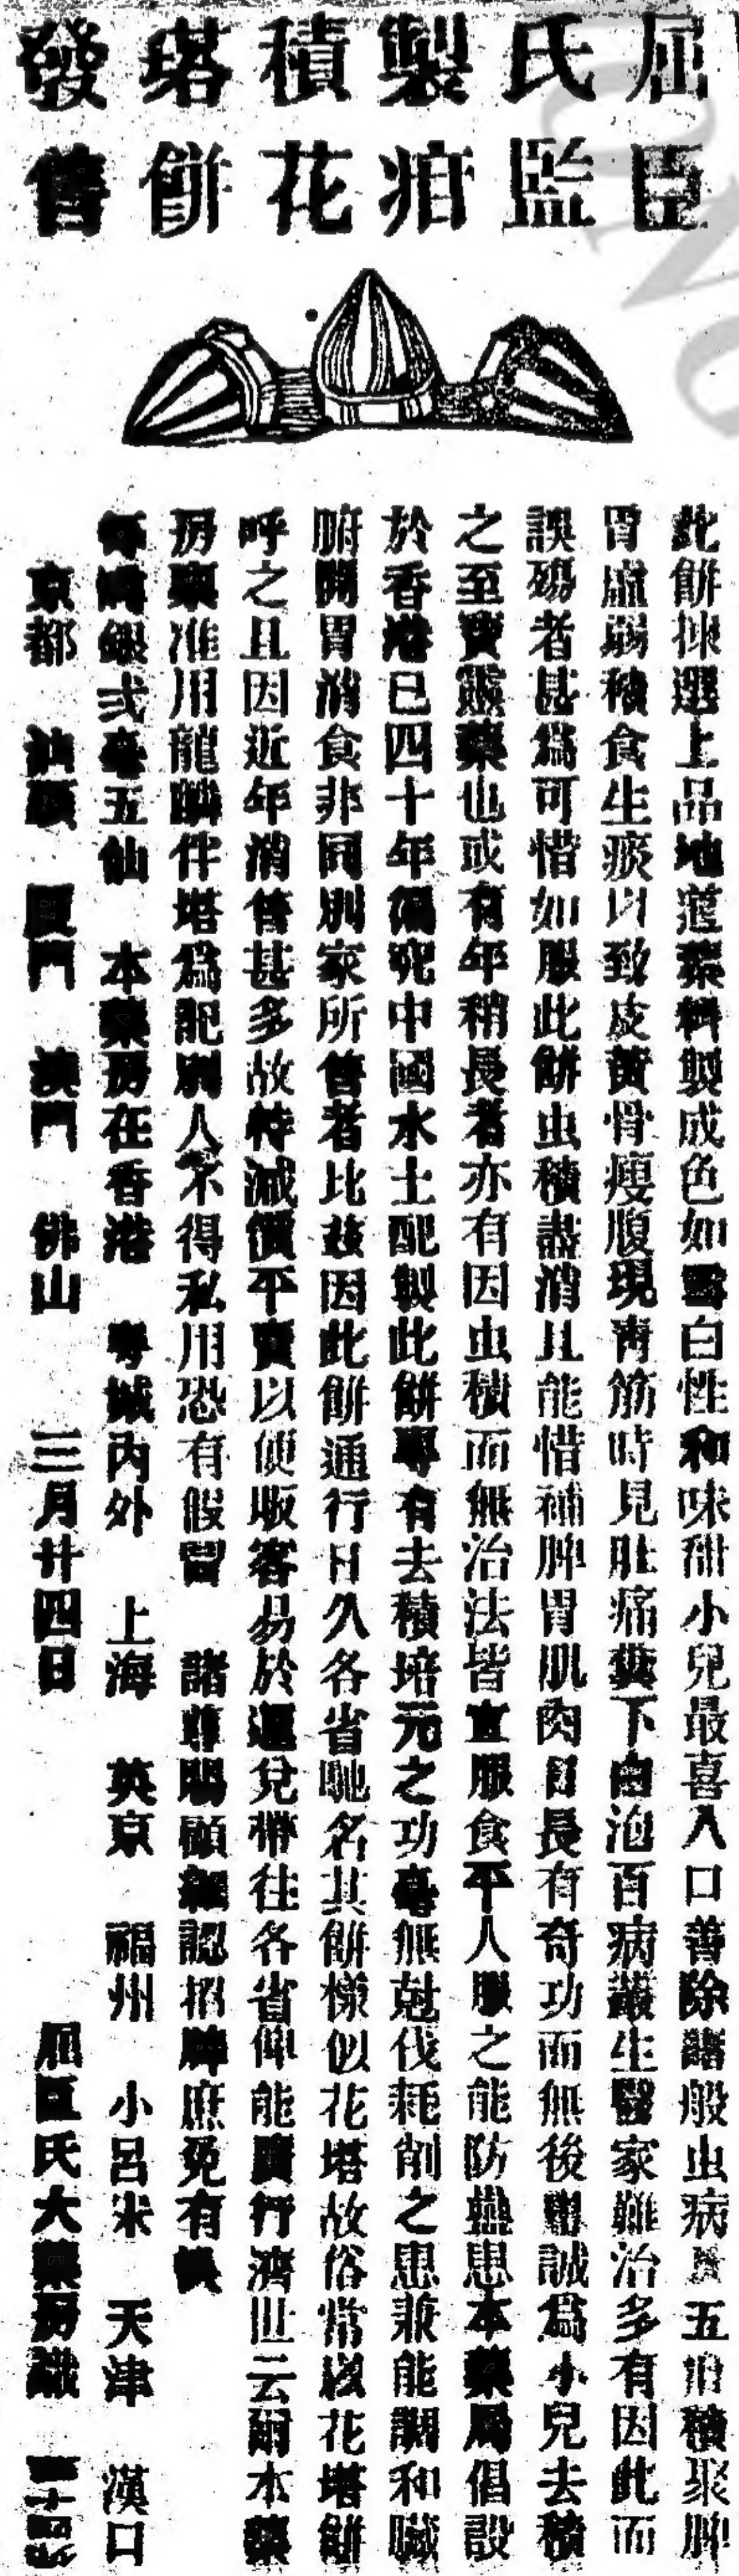 屈臣氏監製疳積花塔餅發售
此餅揀選上品地道藥料製成色如雪白性和味甜小兒最喜入口善除諸般虫病 五疳積聚脾
胃虛弱積食生痰以致皮黃骨瘦腹現青筋時見肚痛糞下白泡百病叢生醫家難治多有因此而
誤殤者甚為可惜如服此餅虫積盡消且能惜補脾胃肌肉日長有奇功而無後患誠為小兒去積
之至寶靈藥也或有年稍長者亦有因虫積而無治法皆宜服食平人服之能防蟲患本藥局倡設
於香港已四十年 究中國水土配製此餅專有去積培元之功毫無尅伐耗削之患兼能調和臟
腑開胃消食非同別家所售者比茲因此餅通行日久各省馳名其餅樣似花塔故俗常以花塔餅
呼之且因近年消售甚多故特減價平賣以便販客易於運兌帶往各省仰能廣行濟世云爾本藥
房票准用龍麟伴塔為記別人不得私用恐有假冒 諸尊賜顧細認招牌庶免有悞
每 銀弍毫五仙 本藥房在香港 粵城內外 上海 英京 福州 小呂宋 天津 漢口
京都 汕頭 厦門 澳門 佛山 三月廿四日 屈臣氏大藥房謹